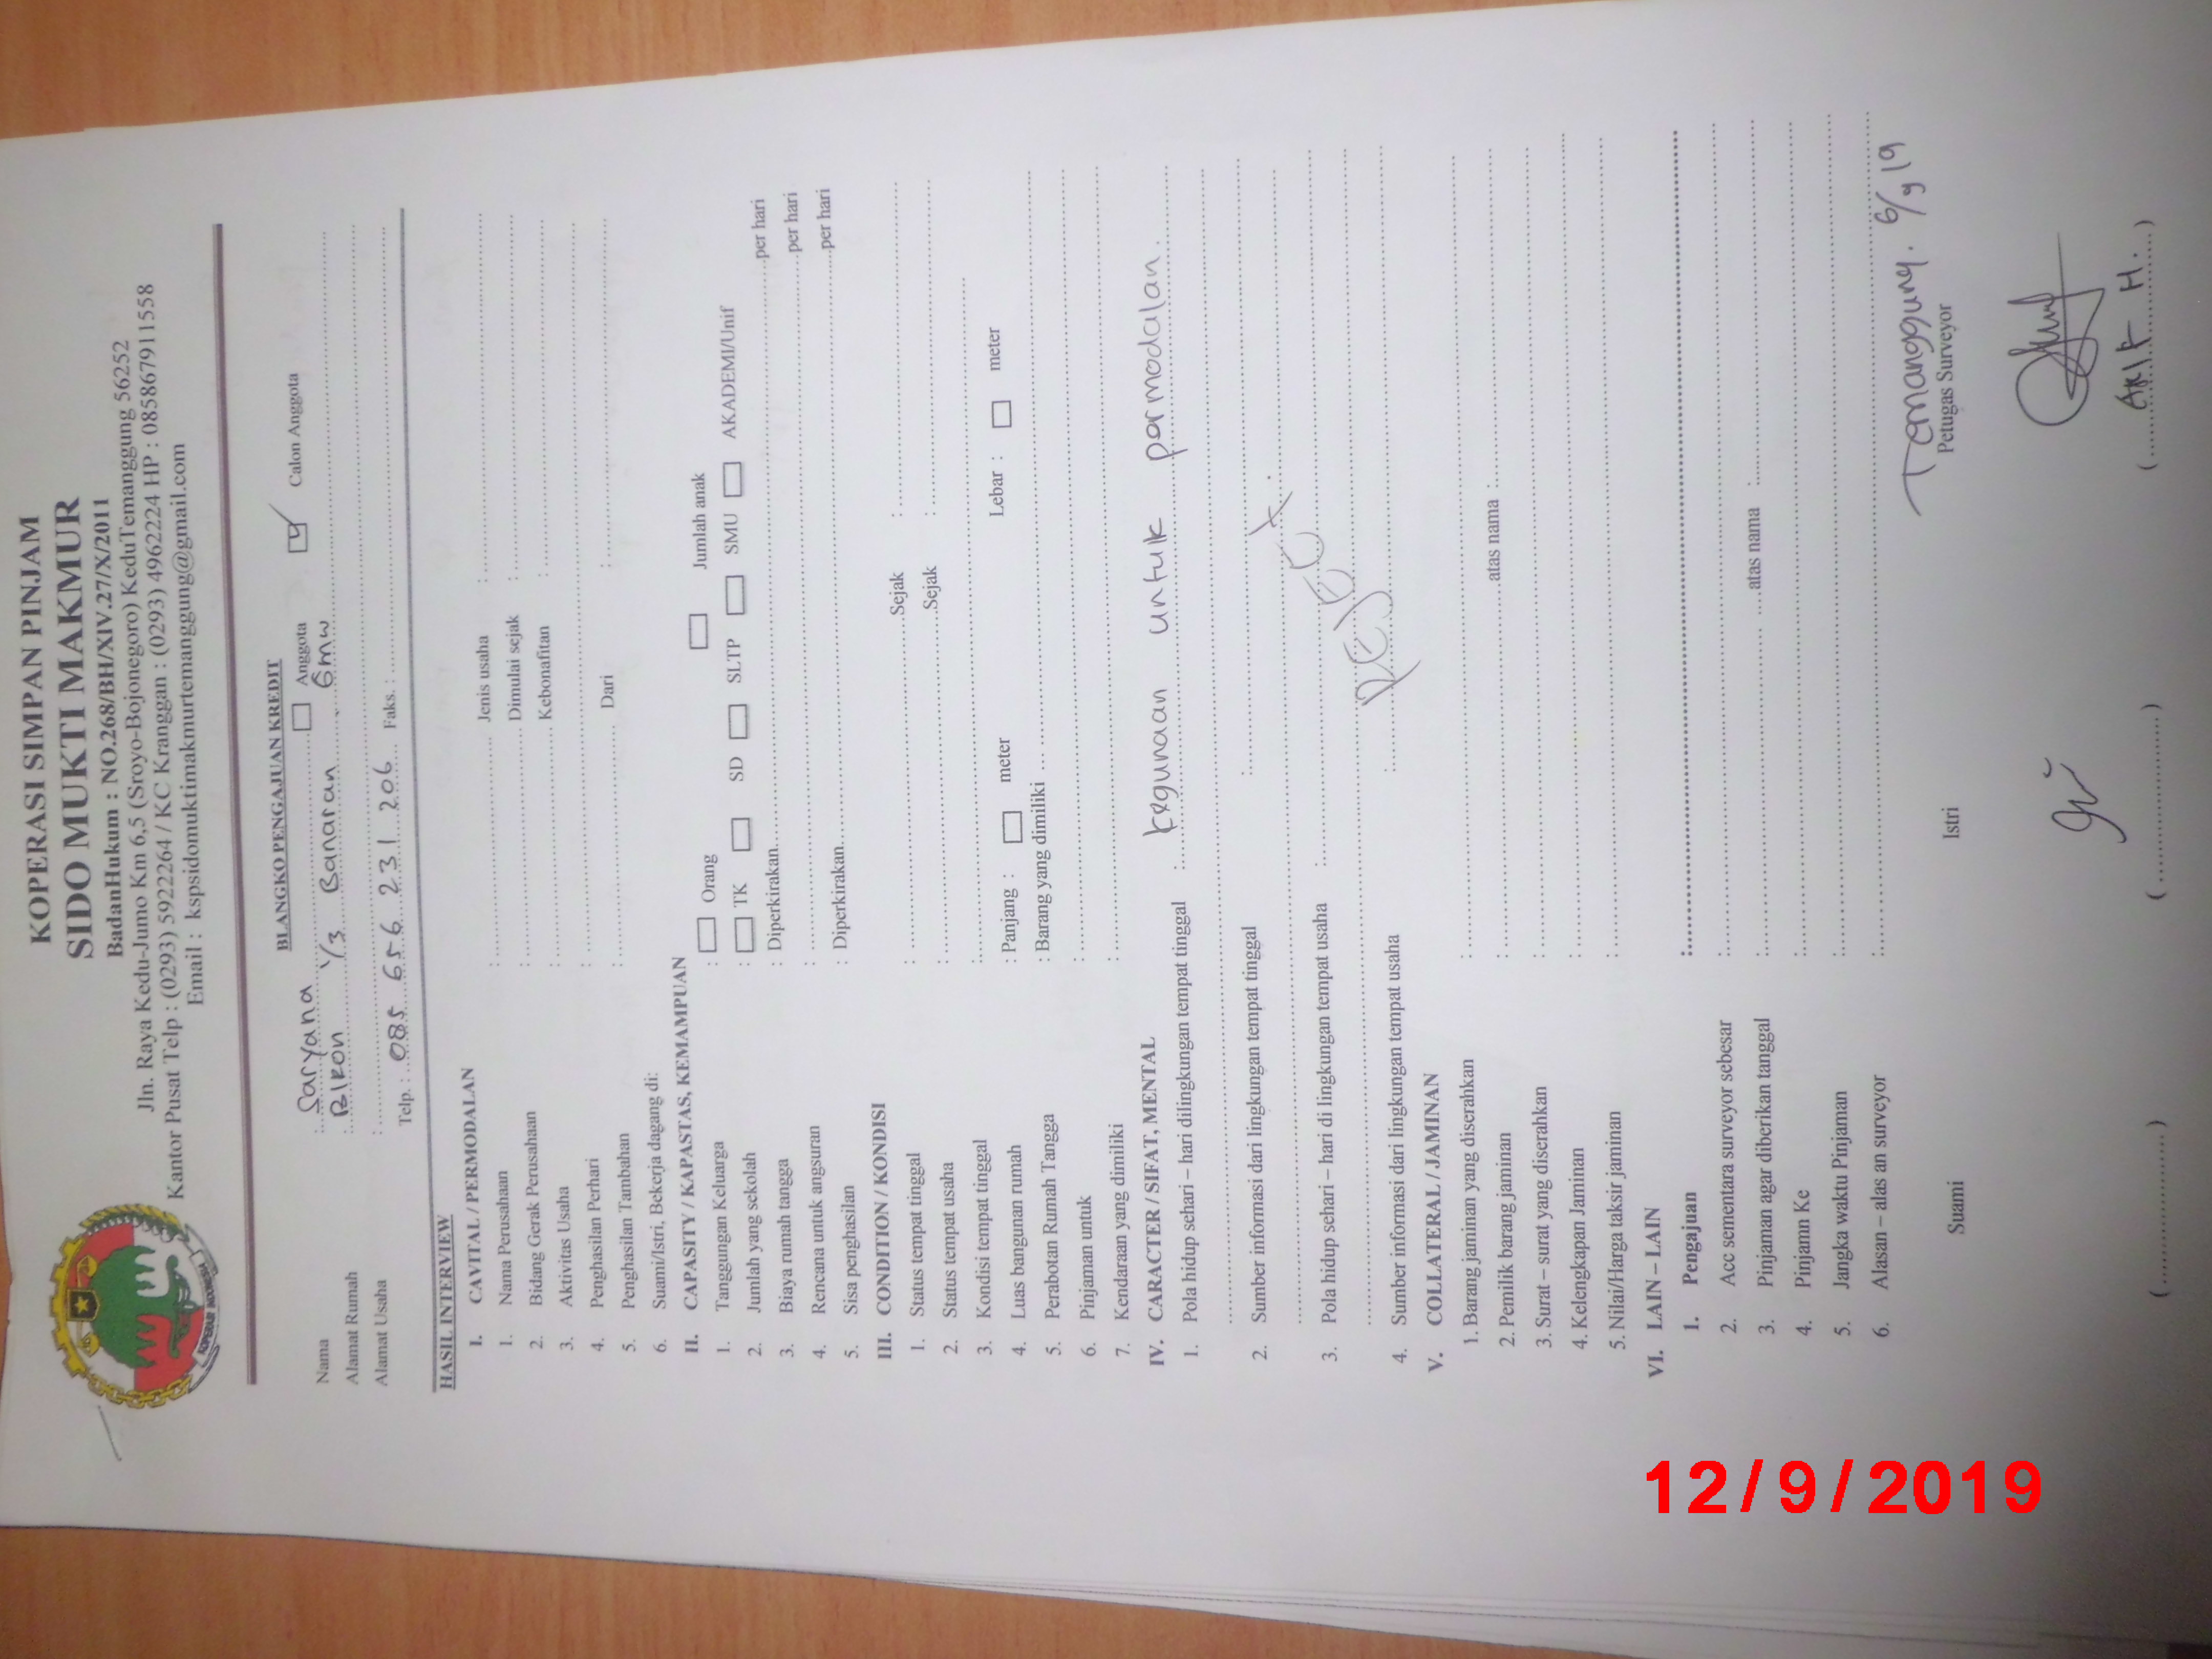 KOPERASI SIMPAN PINJAM
SIDO MUKTI MAKMUR
BadanHukum : NO.268/BH/XIV.27/X/2011
Jln. Raya Kedu-Jumo Km 6,5 (Sroyo-Bojonegoro) KeduTemanggung 56252
Kantor Pusat Telp : (0293) 5922264 / KC Kranggan : (0293) 4962224 HP : 085867911558
Email : kspsidomuktimakmurtemanggung@gmail.com
KOPERASI INDONESIA
BLANGKO PENGAJUAN KREDIT
Nama : Saryana Anggota Calon Anggota
Alamat Rumah : Blkon 1/3 Banaran Gmw
Alamat Usaha :
Telp. : 085 656 231 206 Faks. :
HASIL INTERVIEW
I. CAVITAL / PERMODALAN
1. Nama Perusahaan : Jenis usaha :
2. Bidang Gerak Perusahaan : Dimulai sejak :
3. Aktivitas Usaha : Kebonafitan :
4. Penghasilan Perhari :
5. Penghasilan Tambahan : Dari :
6. Suami/Istri, Bekerja dagang di:
II. CAPASITY / KAPASTAS, KEMAMPUAN
1. Tanggungan Keluarga : Orang Jumlah anak
2. Jumlah yang sekolah : TK SD SLTP SMU AKADEMI/Unif
3. Biaya rumah tangga : Diperkirakan per hari
4. Rencana untuk angsuran : per hari
5. Sisa penghasilan : Diperkirakan per hari
III. CONDITION / KONDISI
1. Status tempat tinggal : Sejak :
2. Status tempat usaha : Sejak :
3. Kondisi tempat tinggal :
4. Luas bangunan rumah : Panjang : meter Lebar : meter
5. Perabotan Rumah Tangga : Barang yang dimiliki
6. Pinjaman untuk :
7. Kendaraan yang dimiliki :
IV. CARACTER / SIFAT, MENTAL
1. Pola hidup sehari – hari dilingkungan tempat tinggal : kegunaan untuk parmodalan.
2. Sumber informasi dari lingkungan tempat tinggal :
3. Pola hidup sehari – hari di lingkungan tempat usaha :
4. Sumber informasi dari lingkungan tempat usaha :
V. COLLATERAL / JAMINAN
1. Barang jaminan yang diserahkan :
2. Pemilik barang jaminan : atas nama :
3. Surat – surat yang diserahkan :
4. Kelengkapan Jaminan :
5. Nilai/Harga taksir jaminan :
VI. LAIN – LAIN
1. Pengajuan :
2. Acc sementara surveyor sebesar :
3. Pinjaman agar diberikan tanggal : atas nama :
4. Pinjamn Ke :
5. Jangka waktu Pinjaman :
6. Alasan – alas an surveyor :
Temanggung. 6/9 19
Suami Istri Petugas Surveyor
(...................) (...................) (ARIF H.)
12/9/2019